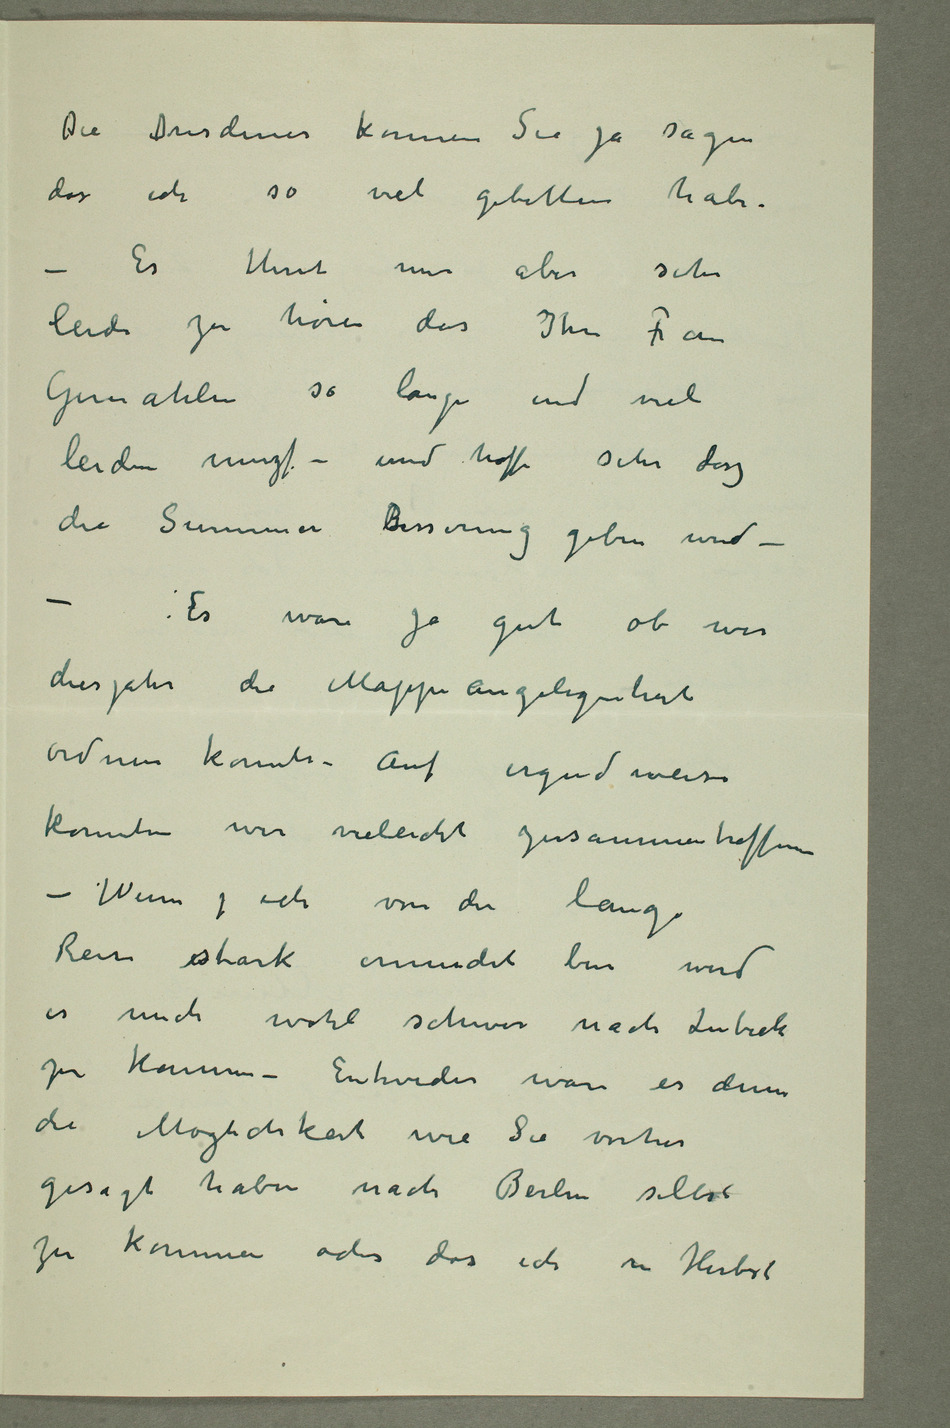 Die Dresdener konnen Sie ja sagen
das ich so viel gebetten habe.
– Es thut mir aber sehr
leide zu hören das Ihre Frau
Gemahlin so lange und viel
leiden muzf – und hoffe sehr dasz
die Summer Besserung geben wird –
– Es ware ja gut ob wir
diesjahr die Mappeangelegenheit
ordnen konnte – Auf irgendweise
konnten wir vieleicht zusammentreffen
– Wenn ich von die lange
Reise stark ermudet bin wird
es mich wohl schwer nach Lubeck
zu kommen – Entweder ware es denn
die Moglichkeit wie Sie vorher
gesagt haben nach Berlin selbst
zu kommen oder das ich in Herbst